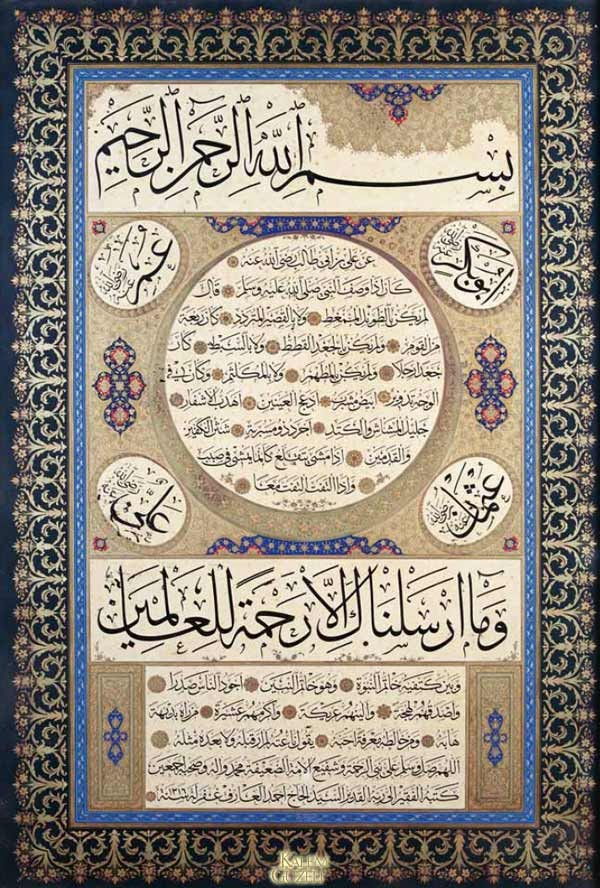 بسم الله الرحمن الرحيم
ابوبكر رضي الله عنه
عمر رضي الله عنه
عن علي بن ابي طالب رضي الله عنه
كان اذا وصف النبي صلى الله عليه وسلم قال
لم يكن بالطويل الممغط ولا بالقصير المتردد وكان ربعة
من القوم ولم يكن بالجعد القطط ولا بالسبط كان
جعدا رجلا ولم يكن بالمطهم ولا بالمكلثم وكان في
الوجه تدوير ابيض مشرب ادعج العينين اهدب الاشفار
جليل المشاش والكتد اجرد ذو مسربة شثن الكفين
والقدمين اذا مشى يتقلع كانما يمشي في صبب
واذا التفت التفت معا
عثمان رضي الله عنه
علي رضي الله عنه
وما ارسلناك الا رحمة للعالمين
وبين كتفيه خاتم النبوة وهو خاتم النبيين اجود الناس صدرا
واصدقهم لهجة والينهم عريكة واكرمهم عشيرة من راه بديهة
هابه ومن خالطه معرفة احبه يقول ناعته لم ار قبله ولا بعده مثله
اللهم صل وسلم على نبي الرحمة وشفيع الامة محمد واله وصحبه اجمعين
كتبه الفقير القدير السيد الحاج احمد العارف غفر له
KALEM GÜZELİ